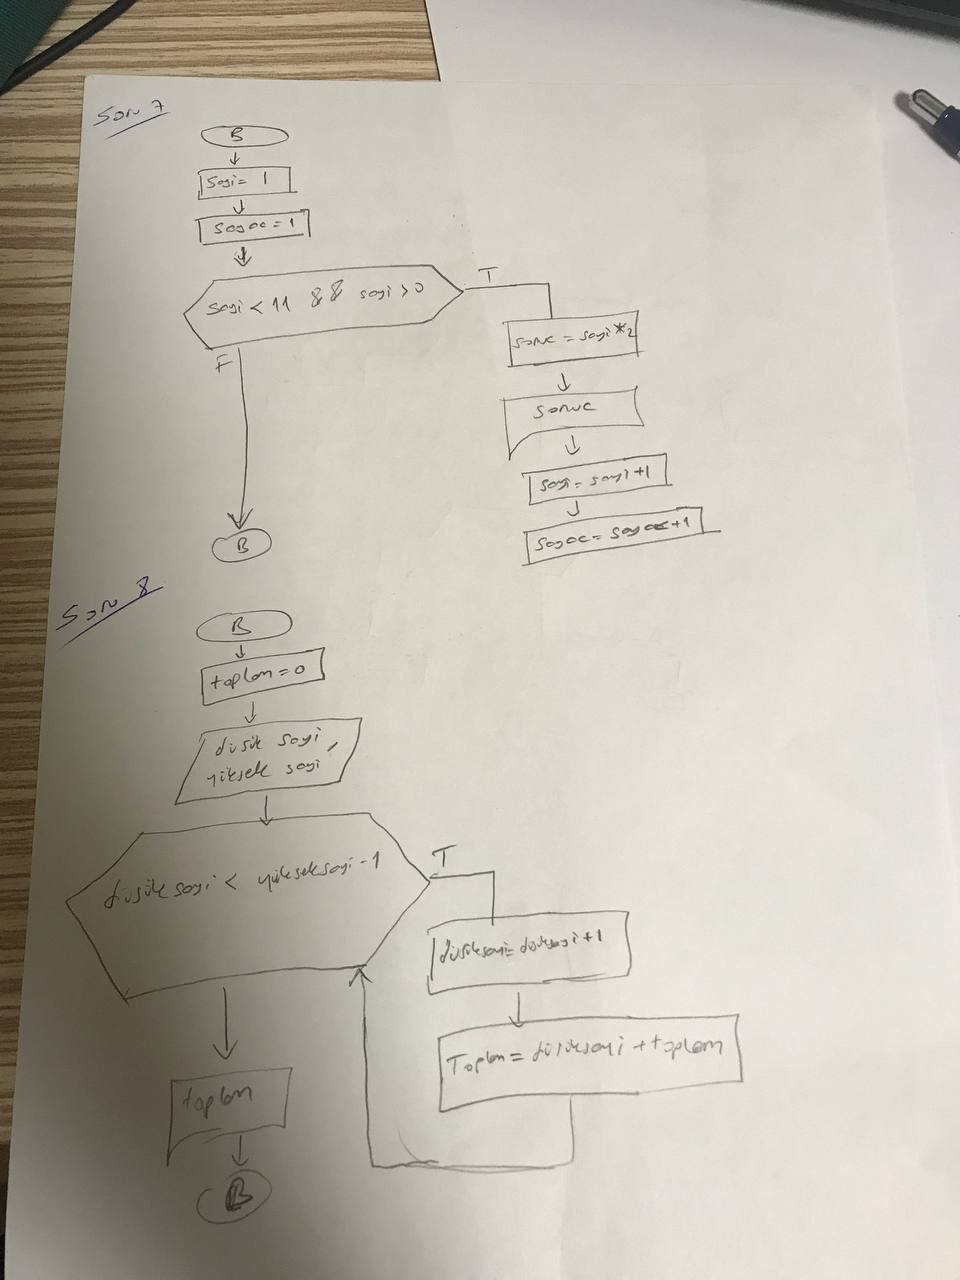 Soru 7
B
Sayi = 1
sayac = 1
sayi < 11 && sayi > 0
T
sonuc = sayi * 2
F
sonuc
sayi = sayi + 1
sayac = sayac + 1
B
Soru 8
B
toplam = 0
düşük sayi,
yüksek sayi
düşük sayi < yükseksayi - 1
T
düşüksayi = düşüksayi + 1
Toplam = düşüksayi + toplam
toplam
B